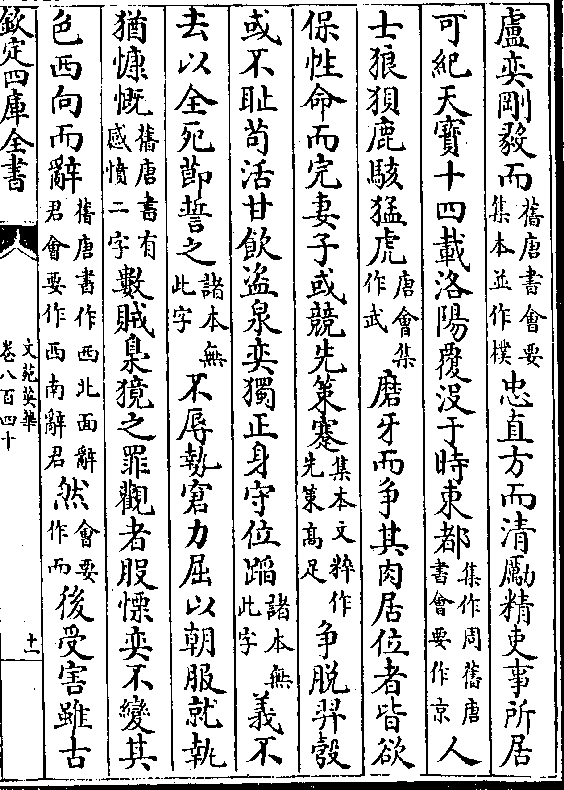 盧奕剛毅而舊唐書會要集本並作樸忠直方而清勵精吏事所居
可紀天寶十四載洛陽覆没于時東都集作周舊唐書會要作京人
士狼狽鹿駭猛虎唐會集作武磨牙而争其肉居位者皆欲
保性命而完妻子或競先策蹇集本文粹作先策高足争脱羿彀
或不耻苟活甘飲盗泉奕獨正身守位蹈諸本無此字義不
去以全死節誓之諸本無此字不辱執窘力屈以朝服就執
猶慷慨舊唐書有感憤二字數賊梟獍之罪觀者股慄奕不變其
色西向而辭舊唐書作西北面辭君會要作西南辭君然會要作而後受害雖古
欽定四庫全書
文苑英華
卷八百四十
十一